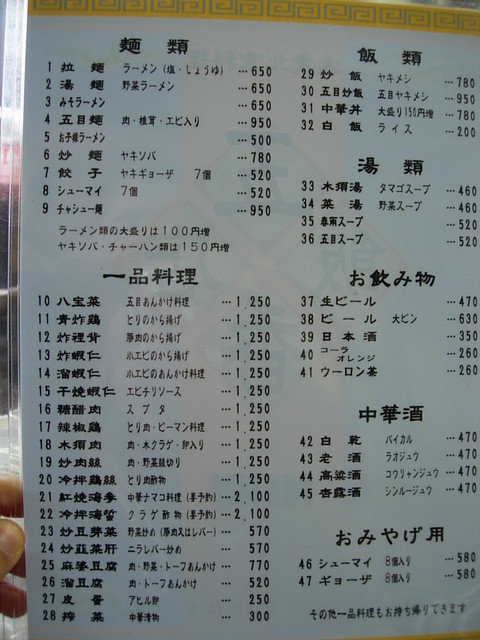 麵類
1 拉麵 ラーメン(塩・しょうゆ) …650
2 湯麵 野菜ラーメン …650
3 みそラーメン …650
4 五目麵 肉・椎茸・エビ入り …950
5 お子様ラーメン …500
6 炒麵 ヤキソバ …780
7 餃子 ヤキギョーザ 7個 …520
8 シューマイ 7個 …520
9 チャシュー麵 …950
ラーメン類の大盛りは100円増
ヤキソバ・チャーハン類は150円増
一品料理
10 八宝菜 五目あんかけ料理 …1,250
11 青炸鶏 とりのから揚げ …1,250
12 炸裡背 豚肉のから揚げ …1,250
13 炸蝦仁 小エビのから揚げ …1,250
14 溜蝦仁 小エビのあんかけ料理 …1,250
15 干焼蝦仁 エビチリソース …1,250
16 糖醋肉 スブタ …1,250
17 辣椒鶏 とり肉・ピーマン料理 …1,250
18 木須肉 肉・木クラゲ・卵入り …1,250
19 炒肉絲 肉・野菜細切り …1,250
20 冷拌鶏絲 とり肉酢物 …1,250
21 紅焼海参 中華ナマコ料理(要予約) …2,100
22 冷拌海蜇 クラゲ酢物(要予約) …2,100
23 炒豆芽菜 野菜炒め(豚肉又はレバー) …570
24 炒韮菜肝 ニラレバー炒め …570
25 麻婆豆腐 肉・野菜・トーフあんかけ …770
26 溜豆腐 肉・トーフあんかけ …520
27 皮蛋 アヒル卵 …250
28 搾菜 中華漬物 …300
飯類
29 炒飯 ヤキメシ …780
30 五目炒飯 五目ヤキメシ …950
31 中華丼 大盛り150円増 …780
32 白飯 ライス …200
湯類
33 木須湯 タマゴスープ …460
34 菜湯 野菜スープ …460
35 春雨スープ …520
36 五目スープ …520
お飲み物
37 生ビール …470
38 ビール 大ビン …630
39 日本酒 …350
40 コーラ オレンジ …260
41 ウーロン茶 …260
中華酒
42 白乾 パイカル …470
43 老酒 ラオジュウ …470
44 高粱酒 コウリャンジュウ …470
45 杏露酒 シンルージュウ …470
おみやげ用
46 シューマイ 8個入り …580
47 ギョーザ 8個入り …580
その他一品料理もお持ち帰りできます